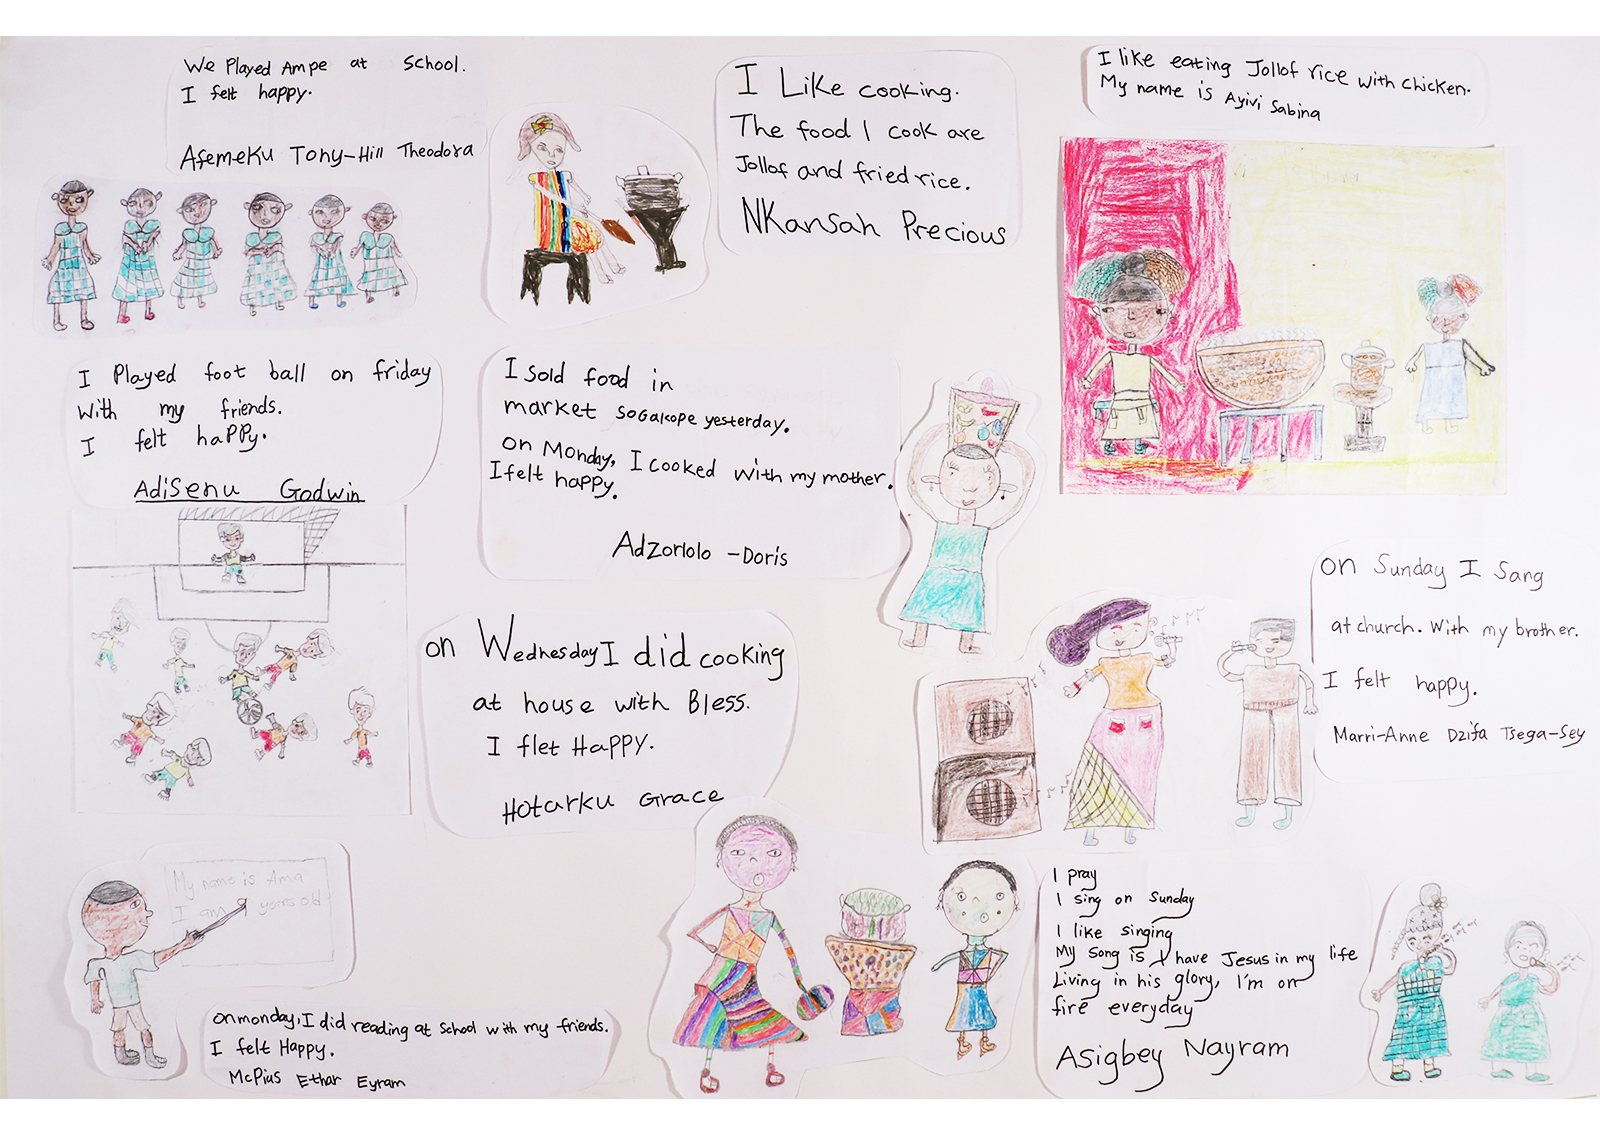 We Played Ampe at School.
I felt happy.
Afemeku Tony-Hill Theodora
I Like cooking.
The food I cook are
Jollof and fried rice.
NKansah Precious
I like eating Jollof rice with chicken.
My name is Ayivi Sabina
I Played foot ball on friday
with my friends.
I felt happy.
Adisenu Godwin
I sold food in
market sogakope yesterday.
on Monday, I cooked with my mother.
I felt happy.
Adzorlolo -Doris
on Sunday I Sang
at church. With my brother.
I felt happy.
Marri-Anne Dzifa Tsega-Sey
on Wednesday I did cooking
at house with Bless.
I flet HaPPY.
Hotarku Grace
My name is Ama
I am 9 years old
on monday, I did reading at School with my friends.
I felt Happy.
McPius Ethar Eyram
I pray
I sing on Sunday
I like singing
My Song is I have Jesus in my life
Living in his glory, I'm on
fire everyday
Asigbey Nayram